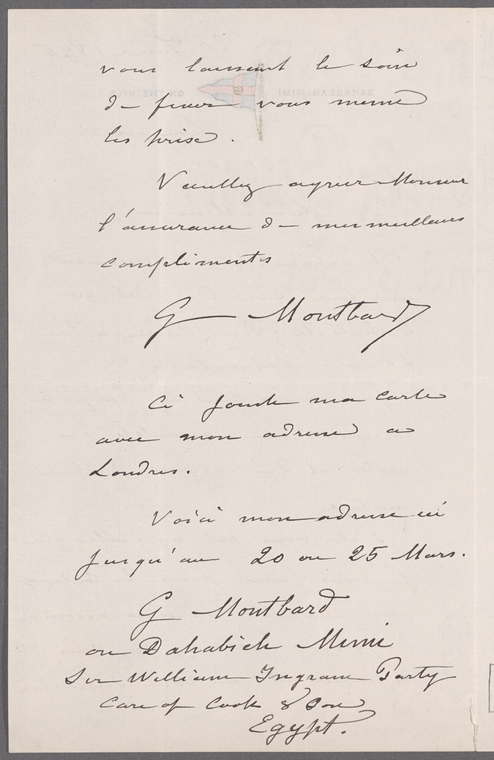 vous laissant le soin
de fixer vous même
les prix.
Veuillez agréer Monsieur
l'assurance de mes meilleurs
compliments
G Montbard
Ci joint ma carte
avec mon adresse a
Londres.
Voici mon adresse ici
jusqu'au 20 ou 25 Mars.
G Montbard
on Dahabieh Mimi
Sir William Ingram Party
Care of Cook & Son
Egypt.